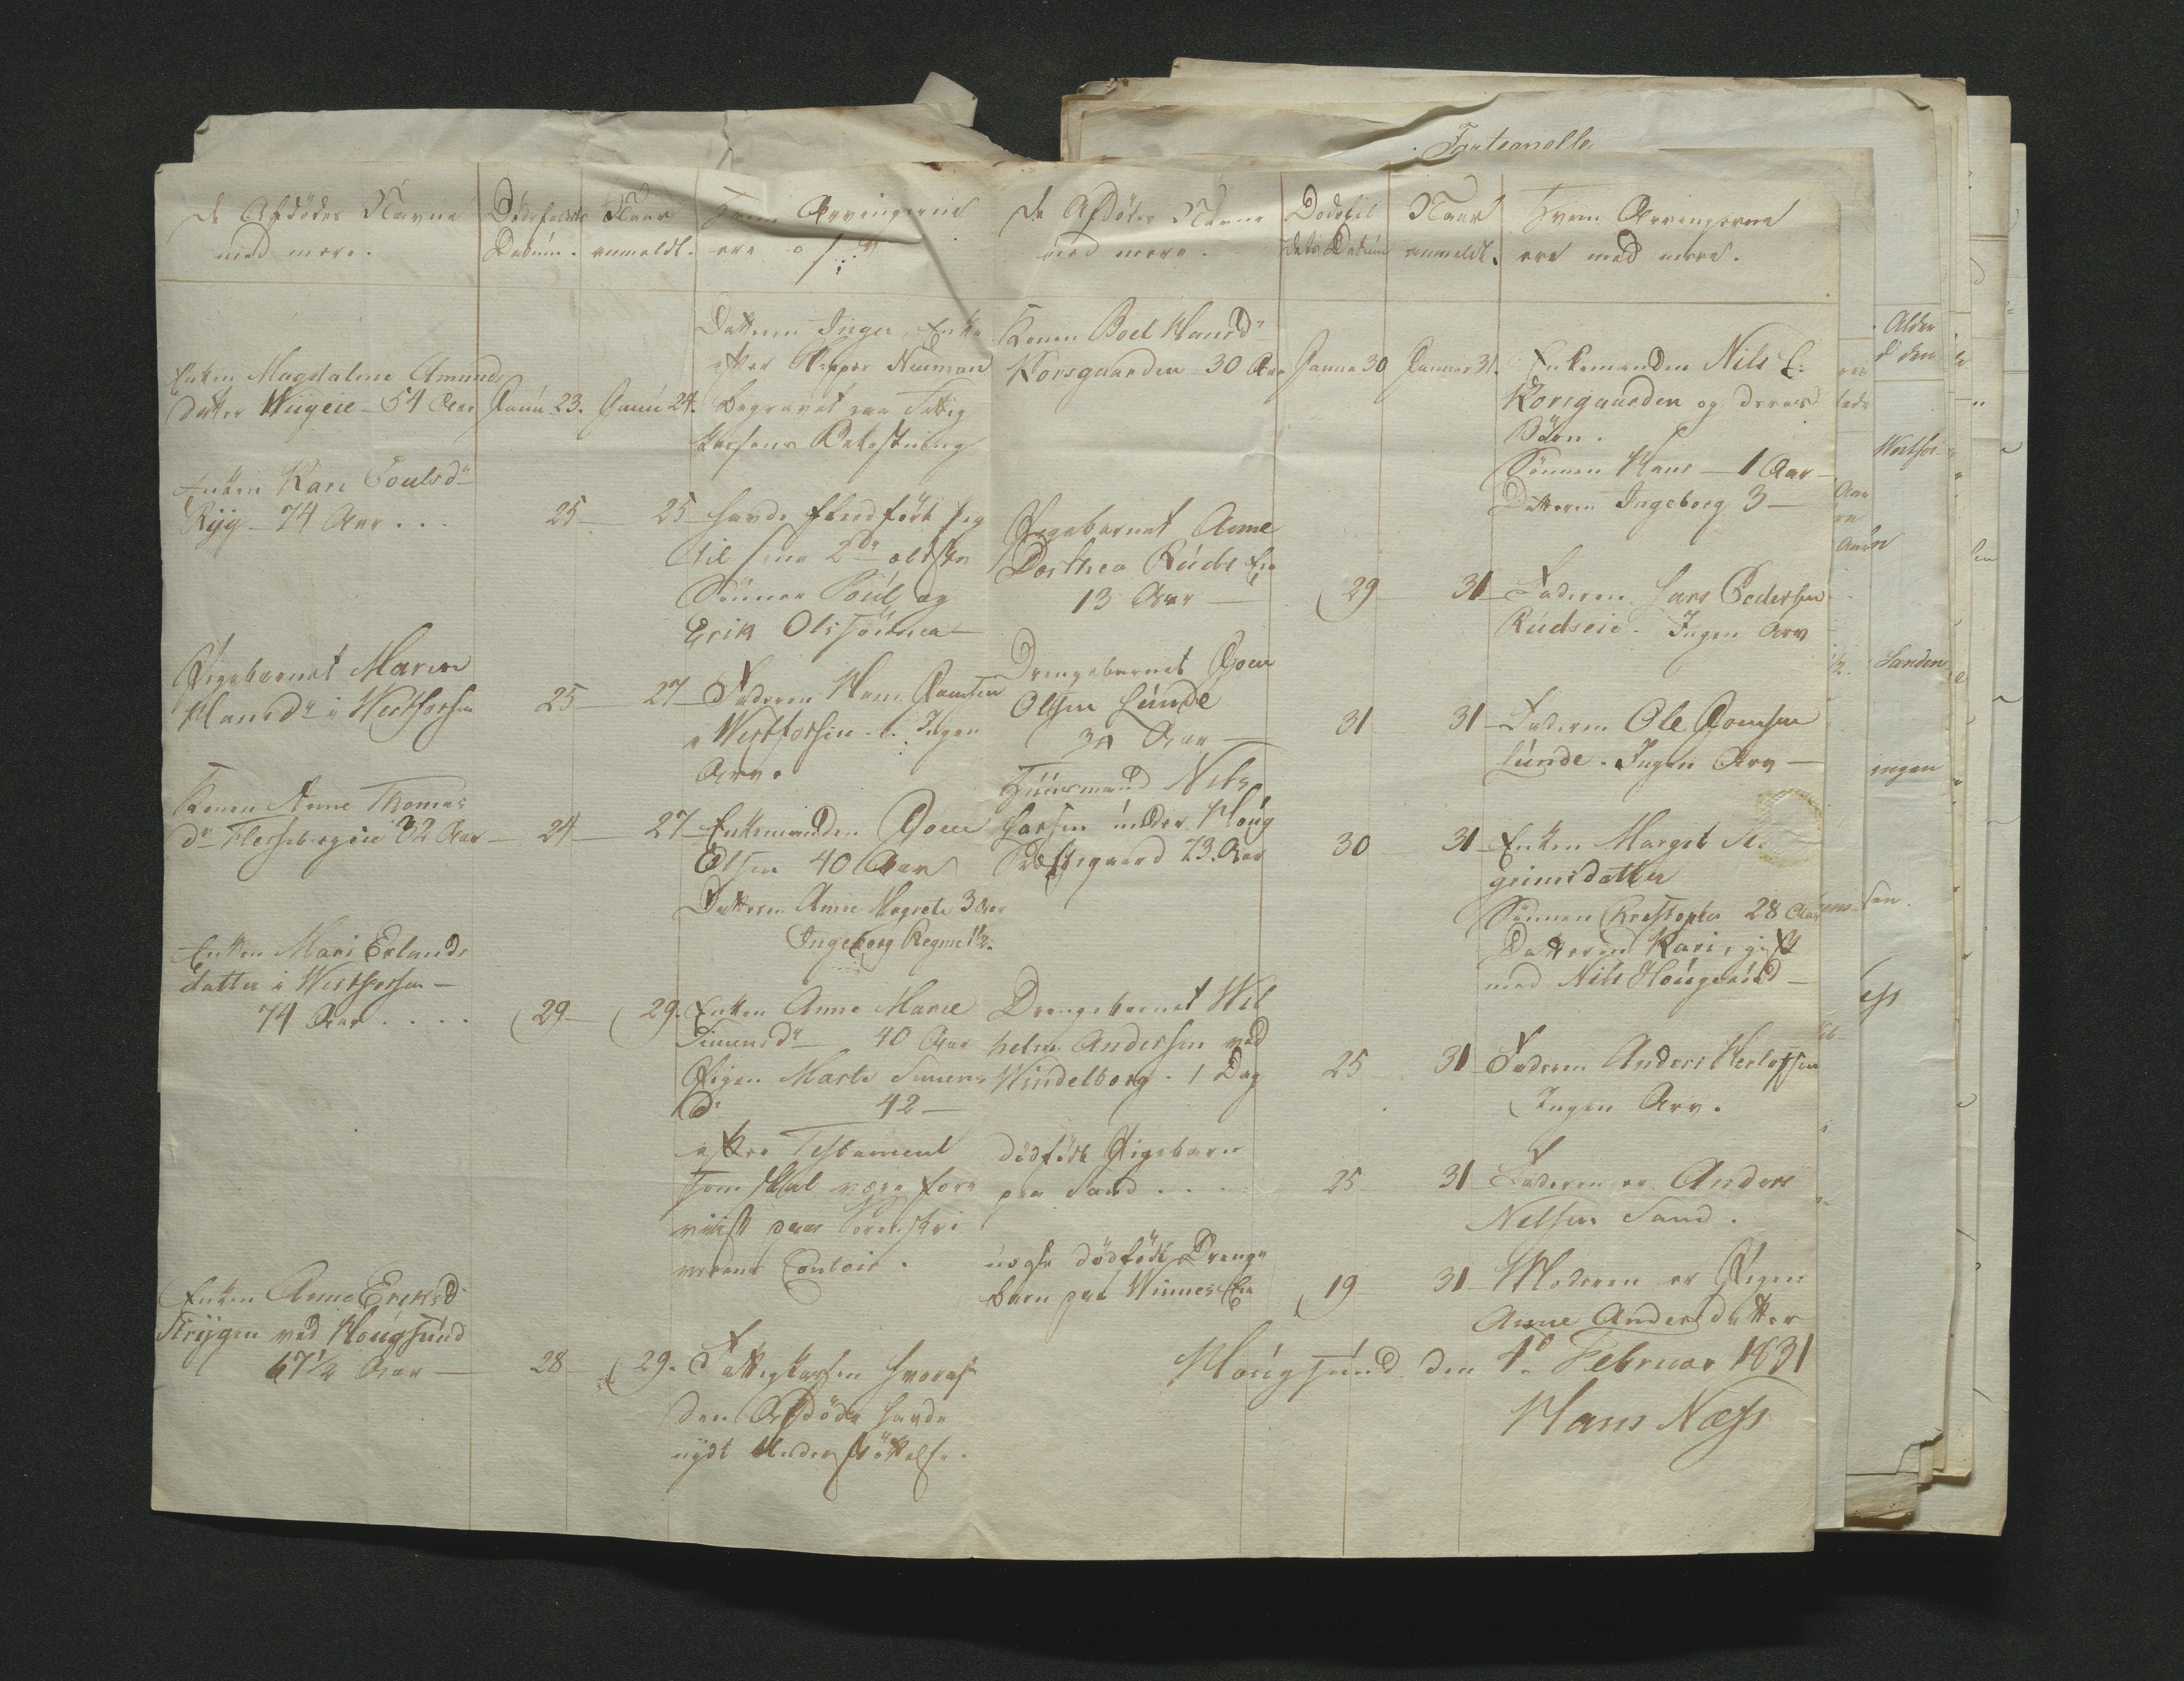 De Afdödes Navne
med mere.
Dödsfaldets
Datum.
Naar
anmeldt.
Hvem Arvingerne
ere o s v
Enken Magdalene Amunds
datter Wiigeie - 54 Aar
Januˑ 23.
Januˑ 24.
Datteren Inger, Enke
efter Skipper Neuman
begravet paa Fattig
kassens Bekostning
Enken Kari Poulsdr
Ryg - 74 Aar . . .
25
25
havde flødført sig
til sine 2de ældste
Sönner Poul og
Erik Ols Sönner
Pigebarnet Maren
Hansdr i Westfossen
25
27
Faderen Hans Jansen
i Westfossen -. Ingen
Arv.
Konen Anne Thomas
dr Flesebergeie 32 Aar
24
27
Enkemanden Joen
Olsen 40 Aar
Datteren Anne Magrete 3 Aar
Ingeborg Regine 1½.
Enken Mari Erlands
datter i Westfossen -
74 Aar . . . .
29
29.
Enken Anne Marie
Simensdr - 40 Aar
Pigen Marte Simens
dr 42 -
efter Testament
som skal være fore
viist paa Sorenskri
verens Contoir.
Enken Anne Eriksd
Krygen ved Hougsund
67½ Aar -
28
29.
Fattigkassen hvoraf
den Afdöde havde
nydt Understöttelse.
De Afdödes Navne
med mere.
Dödsfal
dets Datum
Naar
anmeldt.
Hvem Arvingerne
ere med mere.
Konen Boel Hansdr
Korsgaarden 30 Aar
Janua 30
Januar 31.
Enkemanden Nils E.
Korsgaarden og deres
Börn.
Sönnen Hans - 1 Aar -
Datteren Ingeborg 3 -
Pigebarnet Anne
Dorthea Ruds Eie
13 Aar -
29
31
Faderen Lars Pedersen
Rudseie. Ingen Arv
Drengebarnet Joen
Olsen Lunde
3¼ Aar -
31
31
Faderen Ole Joensen
Lunde. Ingen Arv -
Huusmand Nils
Larsen under Houg
Præstegaard 73. Aar
30
31
Enken Margit
grimsdatter
Sönnen Christopher 28 Aar
Datteren Kari, gift
med Nils Hougsund -
Drengebarnet Wil
helm Andersen ved
Windelborg - 1 Dag
25
31
Faderen Anders Herlofsen
Ingen Arv.
dödfödt Pigebarn
paa Sand . . .
25
31
Faderen er Anders
Nelsen Sand.
nogle dödfödt Drenge
barn paa Winnes Eie
19
31
Moderen er Pigen
Anne Andersdatter
Hougsund den 1d. Februar 1831
Hans Næss
Alder
Westfos
Sanden
ingen
sen.